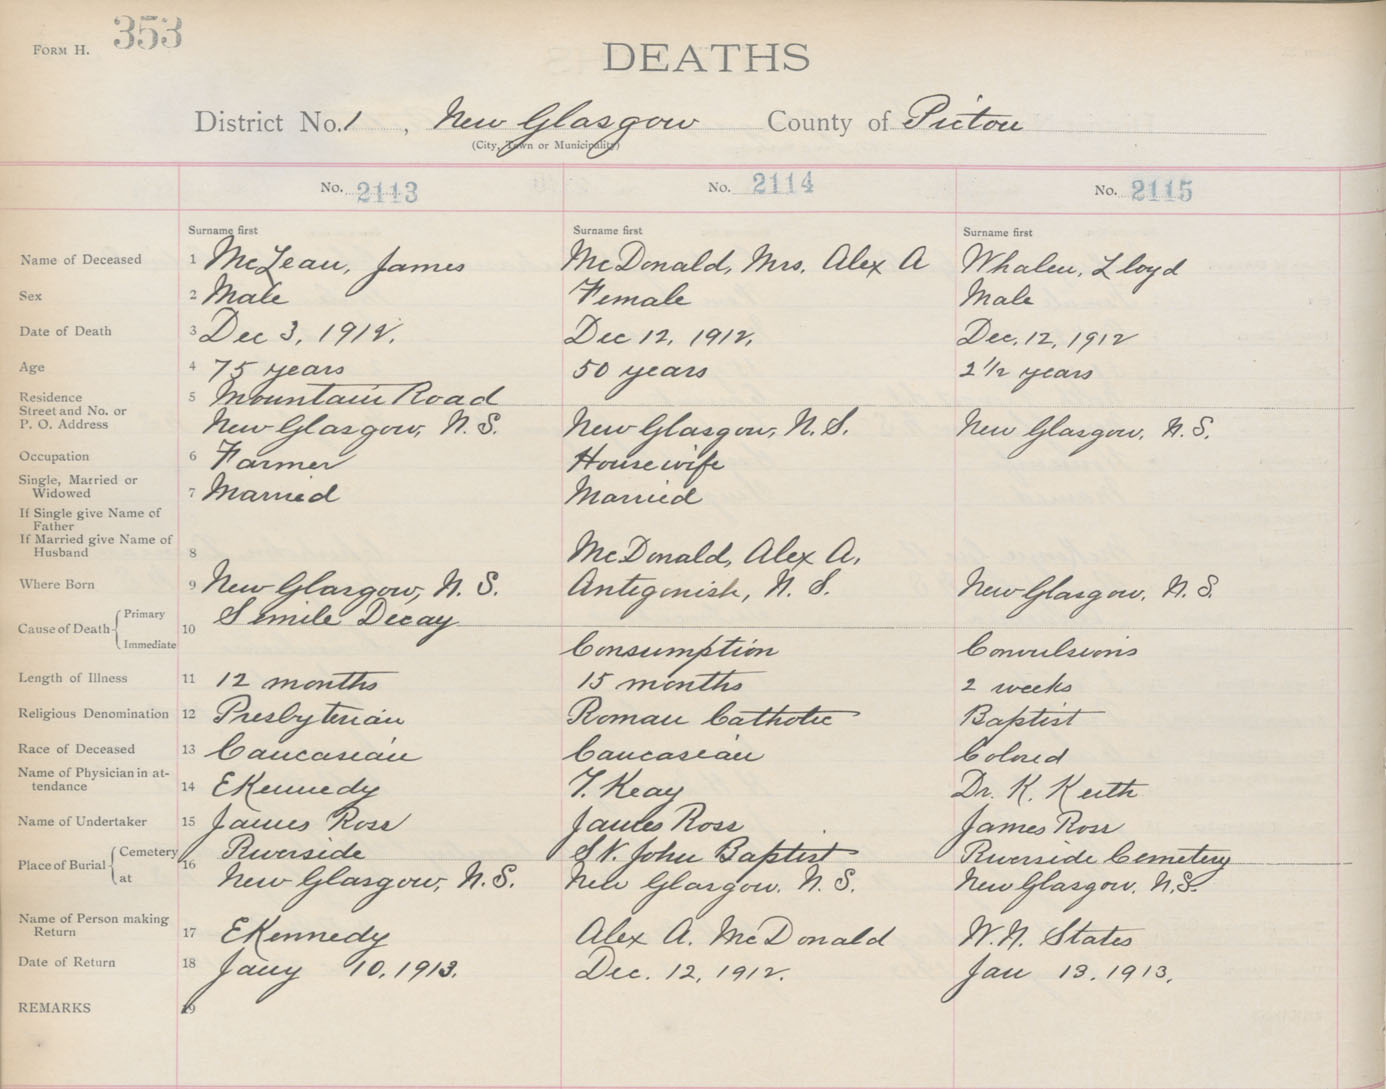 FORM H. 353
DEATHS
District No. 1, New Glasgow County of Pictou
(City, Town or Municipality)
No. 2113 No. 2114 No. 2115
Surname first Surname first Surname first
Name of Deceased 1 McLean, James McDonald, Mrs. Alex A Whalen, Lloyd
Sex 2 Male Female Male
Date of Death 3 Dec 3, 1912. Dec 12, 1912. Dec. 12, 1912
Age 4 75 years 50 years 2 1/2 years
Residence 5 Mountain Road
Street and No. or
P. O. Address New Glasgow, N.S. New Glasgow, N.S. New Glasgow, N.S.
Occupation 6 Farmer Housewife
Single, Married or
Widowed 7 Married Married
If Single give Name of
Father
If Married give Name of
Husband 8 McDonald, Alex A.
Where Born 9 New Glasgow, N.S. Antigonish, N.S. New Glasgow, N.S.
Cause of Death Primary 10 Senile Decay
Immediate Consumption Convulsions
Length of Illness 11 12 months 15 months 2 weeks
Religious Denomination 12 Presbyterian Roman Catholic Baptist
Race of Deceased 13 Caucasian Caucasian Colored
Name of Physician in at-
tendance 14 E Kennedy F. Keay Dr. K. Keith
Name of Undertaker 15 James Ross James Ross James Ross
Place of Burial Cemetery 16 Riverside St. John Baptist Riverside Cemetery
at New Glasgow, N.S. New Glasgow. N.S. New Glasgow. N.S.
Name of Person making
Return 17 E Kennedy Alex A. McDonald W.N. States
Date of Return 18 Jany 10, 1913. Dec. 12, 1912. Jan 13. 1913.
REMARKS 19